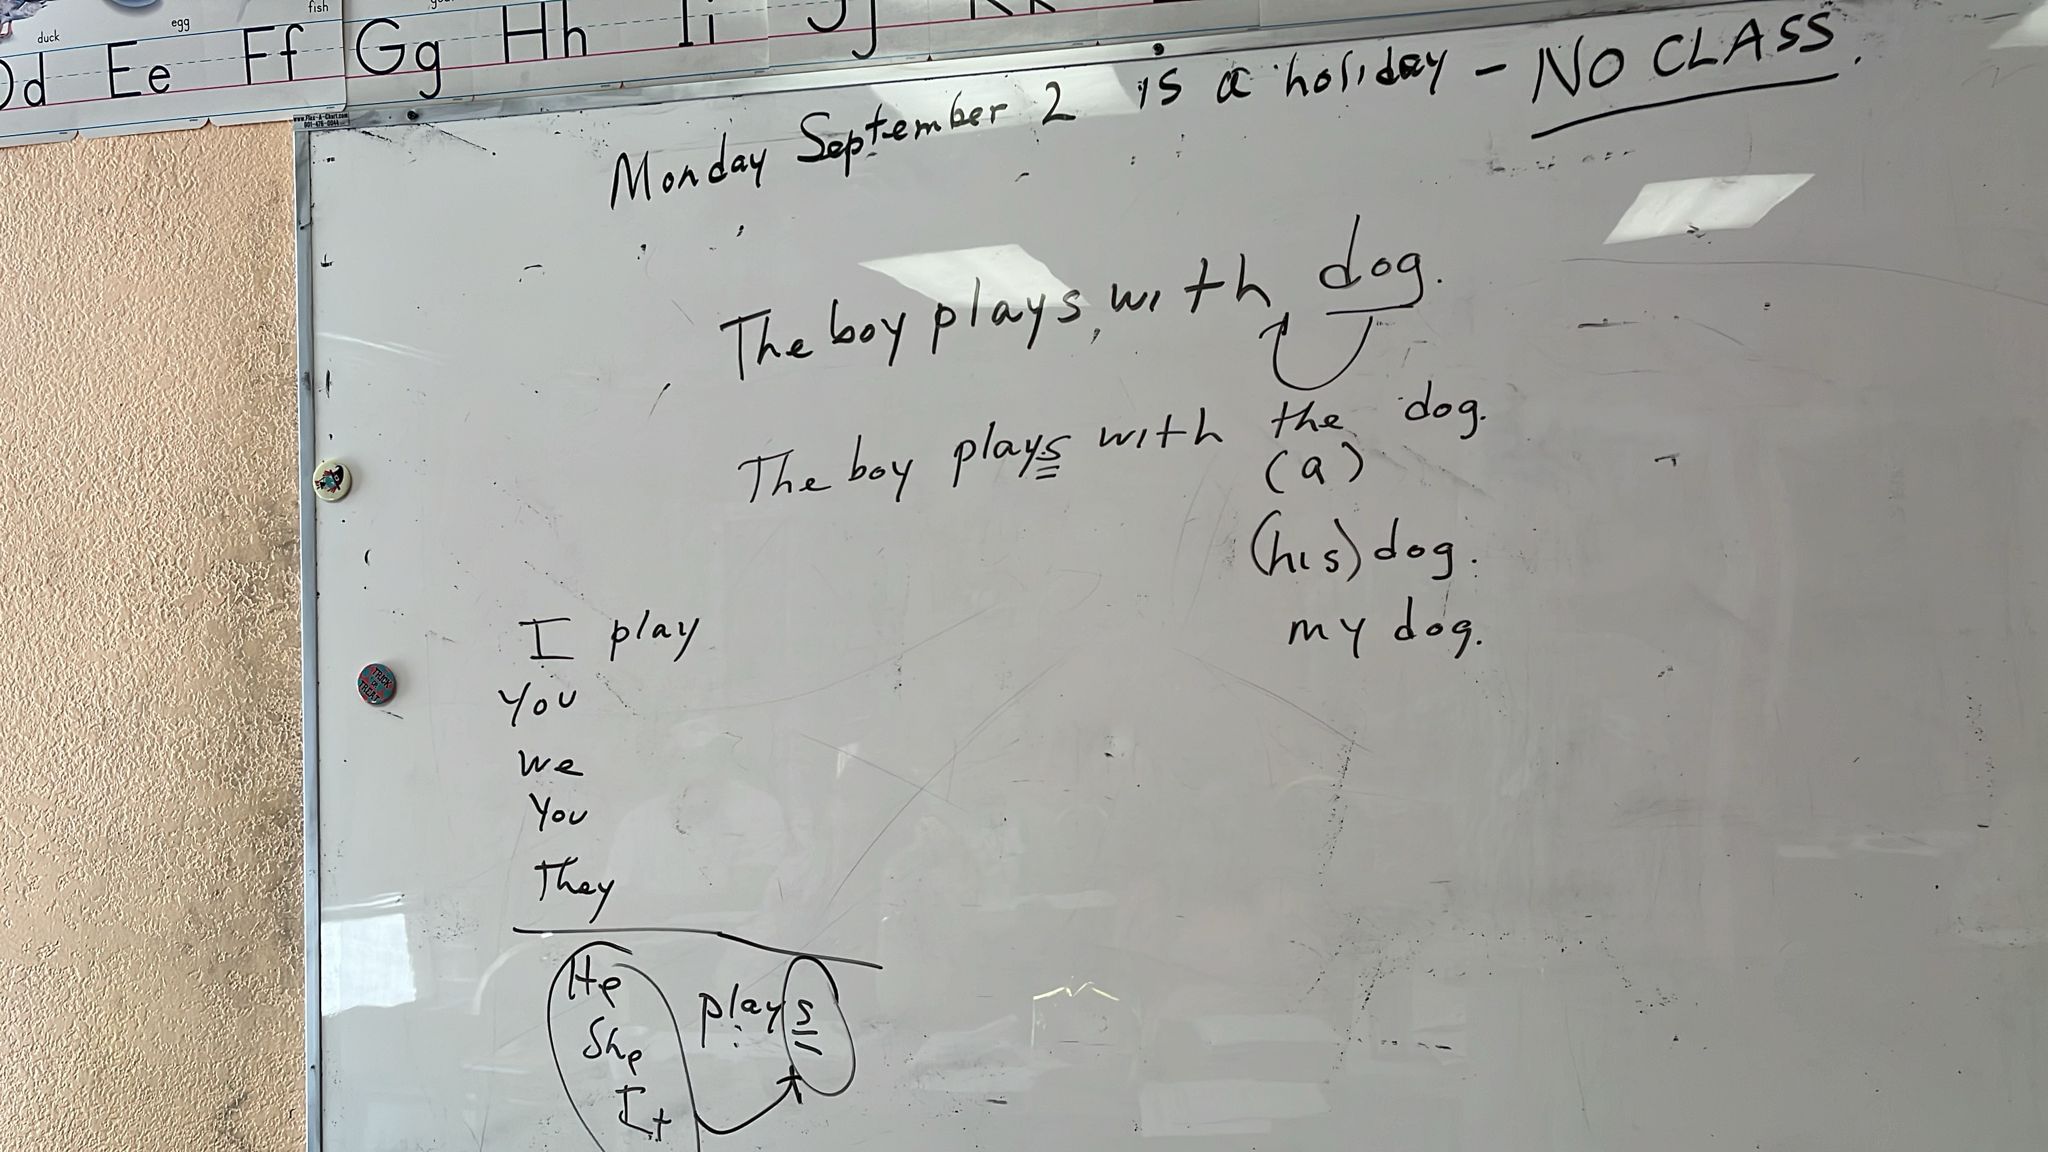 duck
egg
fish
Dd Ee Ff Gg Hh Ii Jj Kk
www.Plas-A-Chart.com
Monday September 2 is a holiday - NO CLASS.
The boy plays with dog.
The boy plays with the dog.
(a)
(his) dog.
my dog.
I play
You
We
You
They
He plays
She
It
TRICK OR TREAT